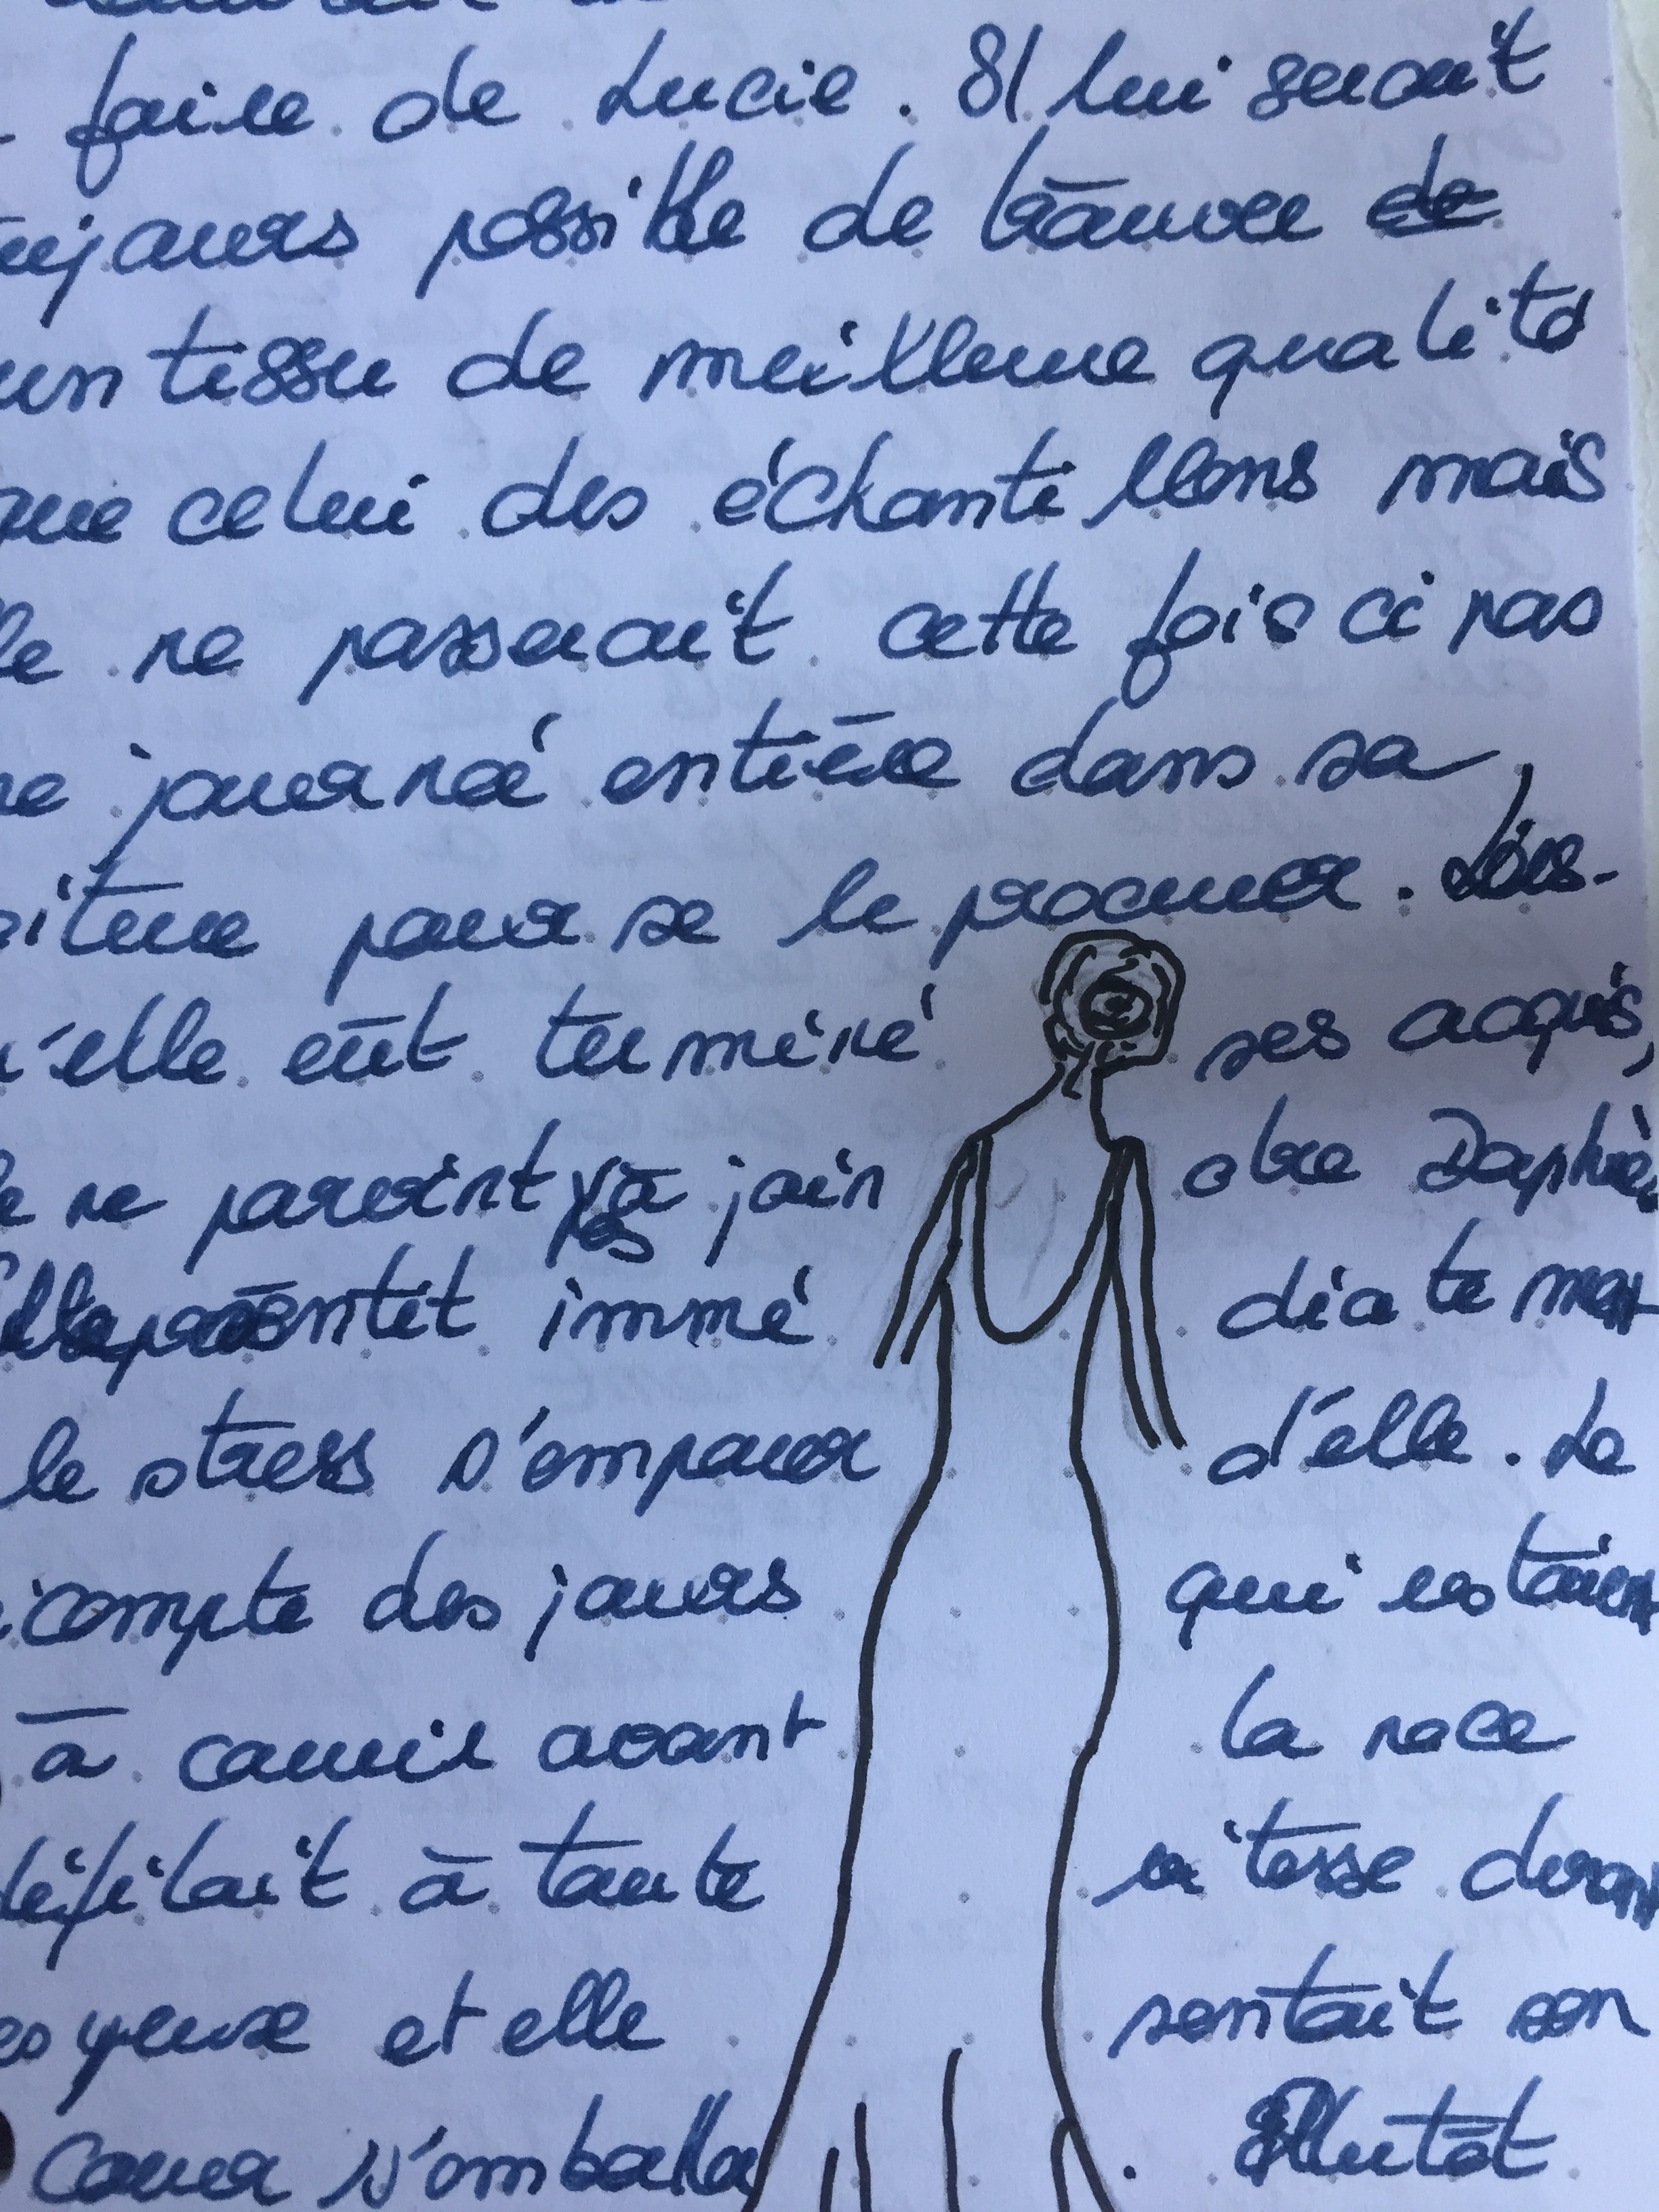 faire de Lucie. Il lui serait
ujours possible de trouver de
un tissu de meilleure qualité
que celui des échantillons mais
le ne passerait cette fois ci pas
ne journée entière dans sa
oiture pour se le procurer. Lors-
u'elle eût terminé ses acquis,
le ne parvint pas à join dre Daphné.
sentit immé diatement
le stress s'emparer d'elle. Le
écompte des jours qui restaient
à courir avant la noce
défilait à toute vitesse devant
es yeux et elle sentait son
coeur s'emballer. Plutôt